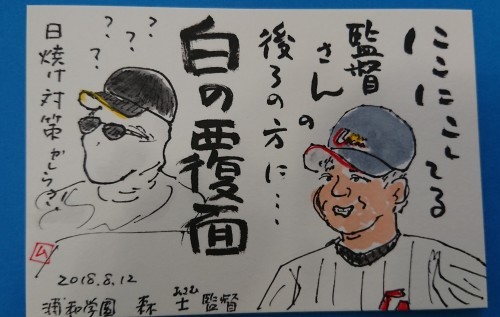 にこにこしてる
監督
さんの
後ろの方に…
白の覆面
？
？
？
？
日焼け対策かしら？
2018.8.12
浦和学園 森 士 監督
おさむ